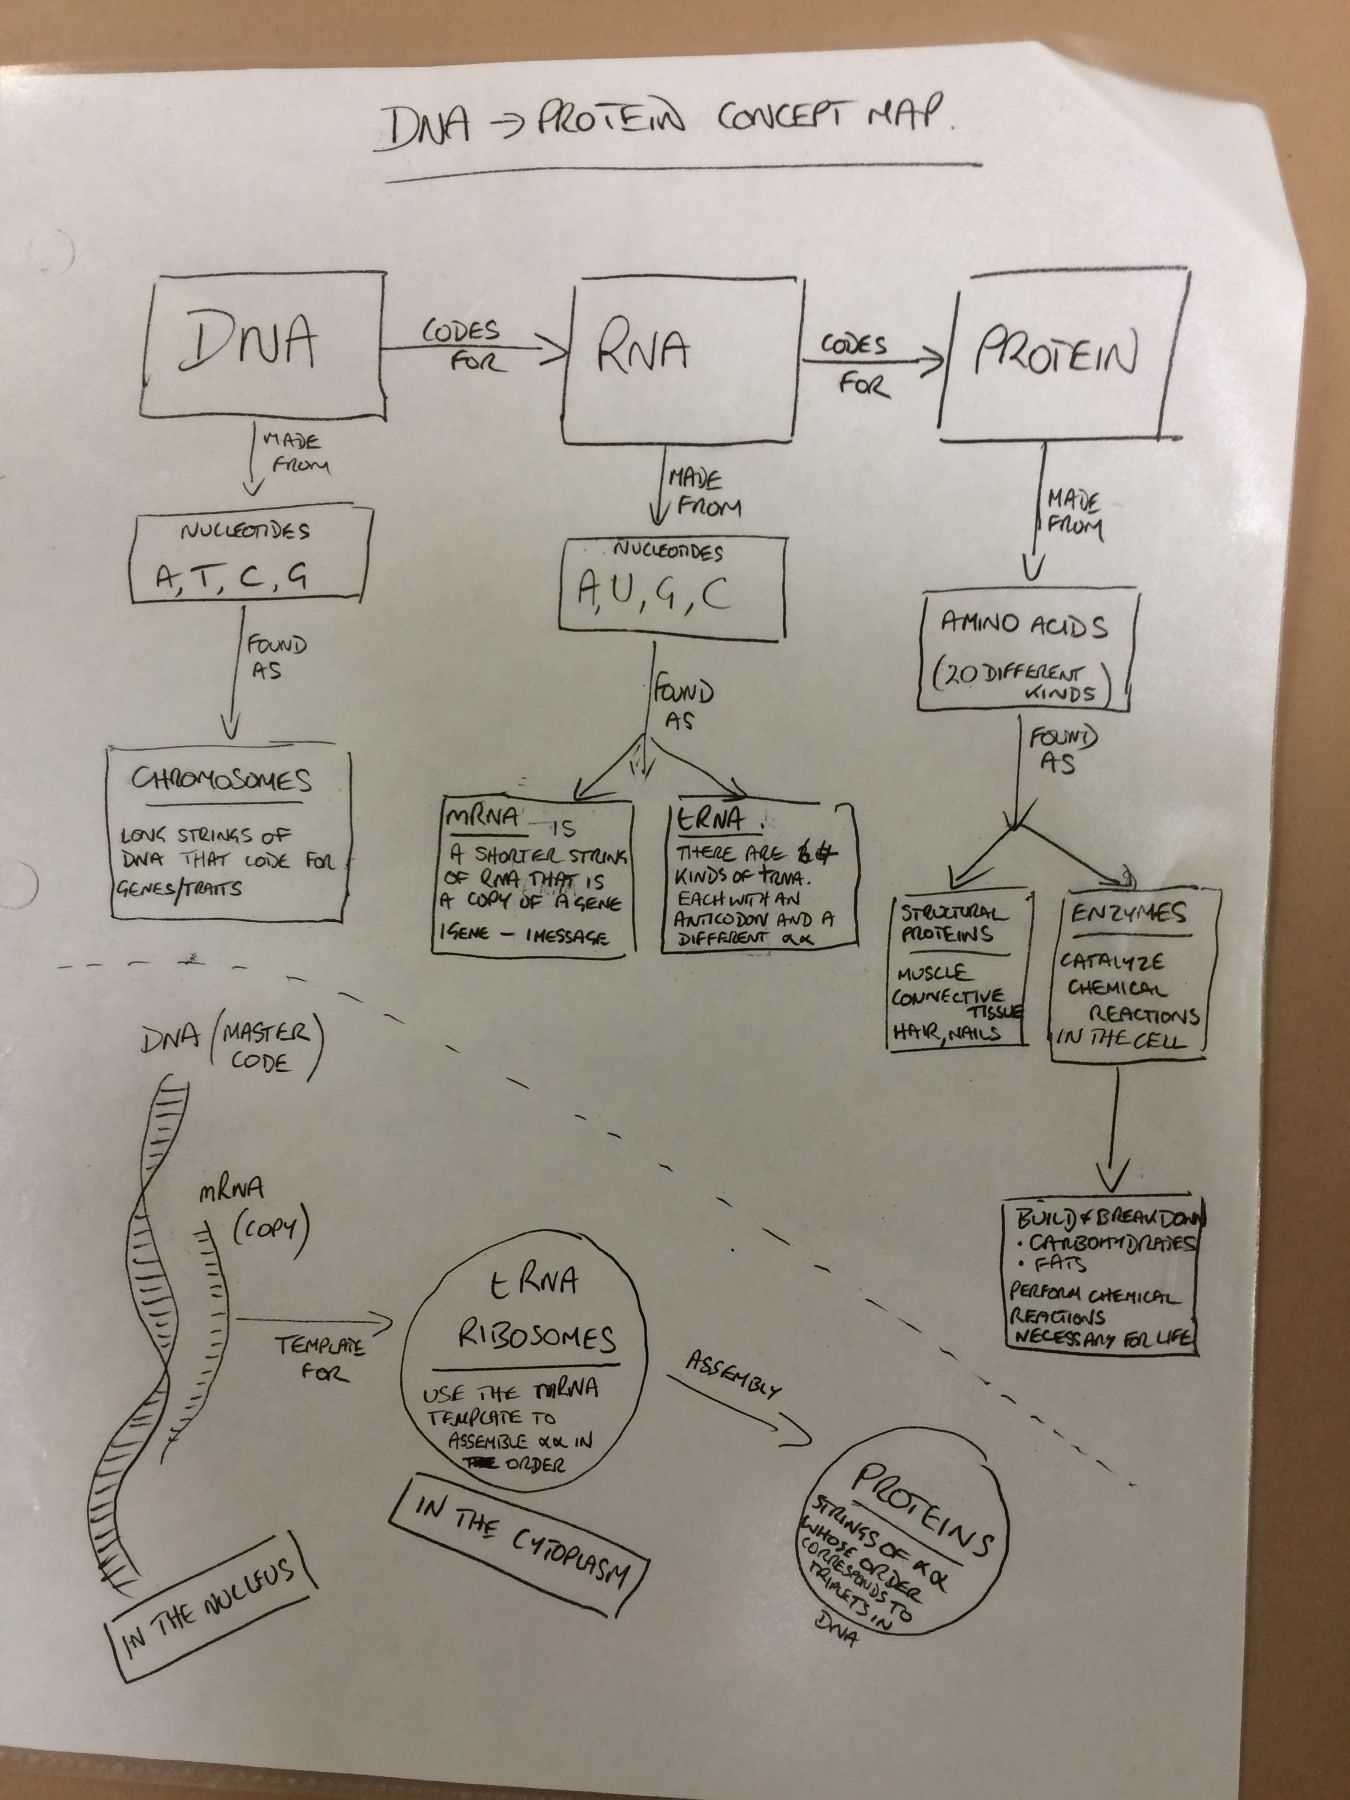 DNA → PROTEIN CONCEPT MAP.
DNA
CODES
FOR
RNA
CODES
FOR
PROTEIN
MADE
FROM
NUCLEOTIDES
A, T, C, G
FOUND
AS
CHROMOSOMES
LONG STRINGS OF
DNA THAT CODE FOR
GENES/TRAITS
MADE
FROM
NUCLEOTIDES
A, U, G, C
FOUND
AS
mRNA IS
A SHORTER STRING
OF RNA THAT IS
A COPY OF A GENE
1GENE – 1MESSAGE
tRNA.
THERE ARE
KINDS OF tRNA.
EACH WITH AN
ANTICODON AND A
DIFFERENT αα
MADE
FROM
AMINO ACIDS
(20 DIFFERENT
KINDS)
FOUND
AS
STRUCTURAL
PROTEINS
MUSCLE
CONNECTIVE
TISSUE
HAIR, NAILS
ENZYMES
CATALYZE
CHEMICAL
REACTIONS
IN THE CELL
BUILD & BREAKDOWN
• CARBOHYDRATES
• FATS
PERFORM CHEMICAL
REACTIONS
NECESSARY FOR LIFE
DNA (MASTER
CODE)
mRNA
(COPY)
TEMPLATE
FOR
tRNA
RIBOSOMES
USE THE mRNA
TEMPLATE TO
ASSEMBLE αα IN
ORDER
ASSEMBLY
PROTEINS
STRINGS OF αα
WHOSE ORDER
CORRESPONDS TO
TRIPLETS IN
DNA
IN THE NUCLEUS
IN THE CYTOPLASM